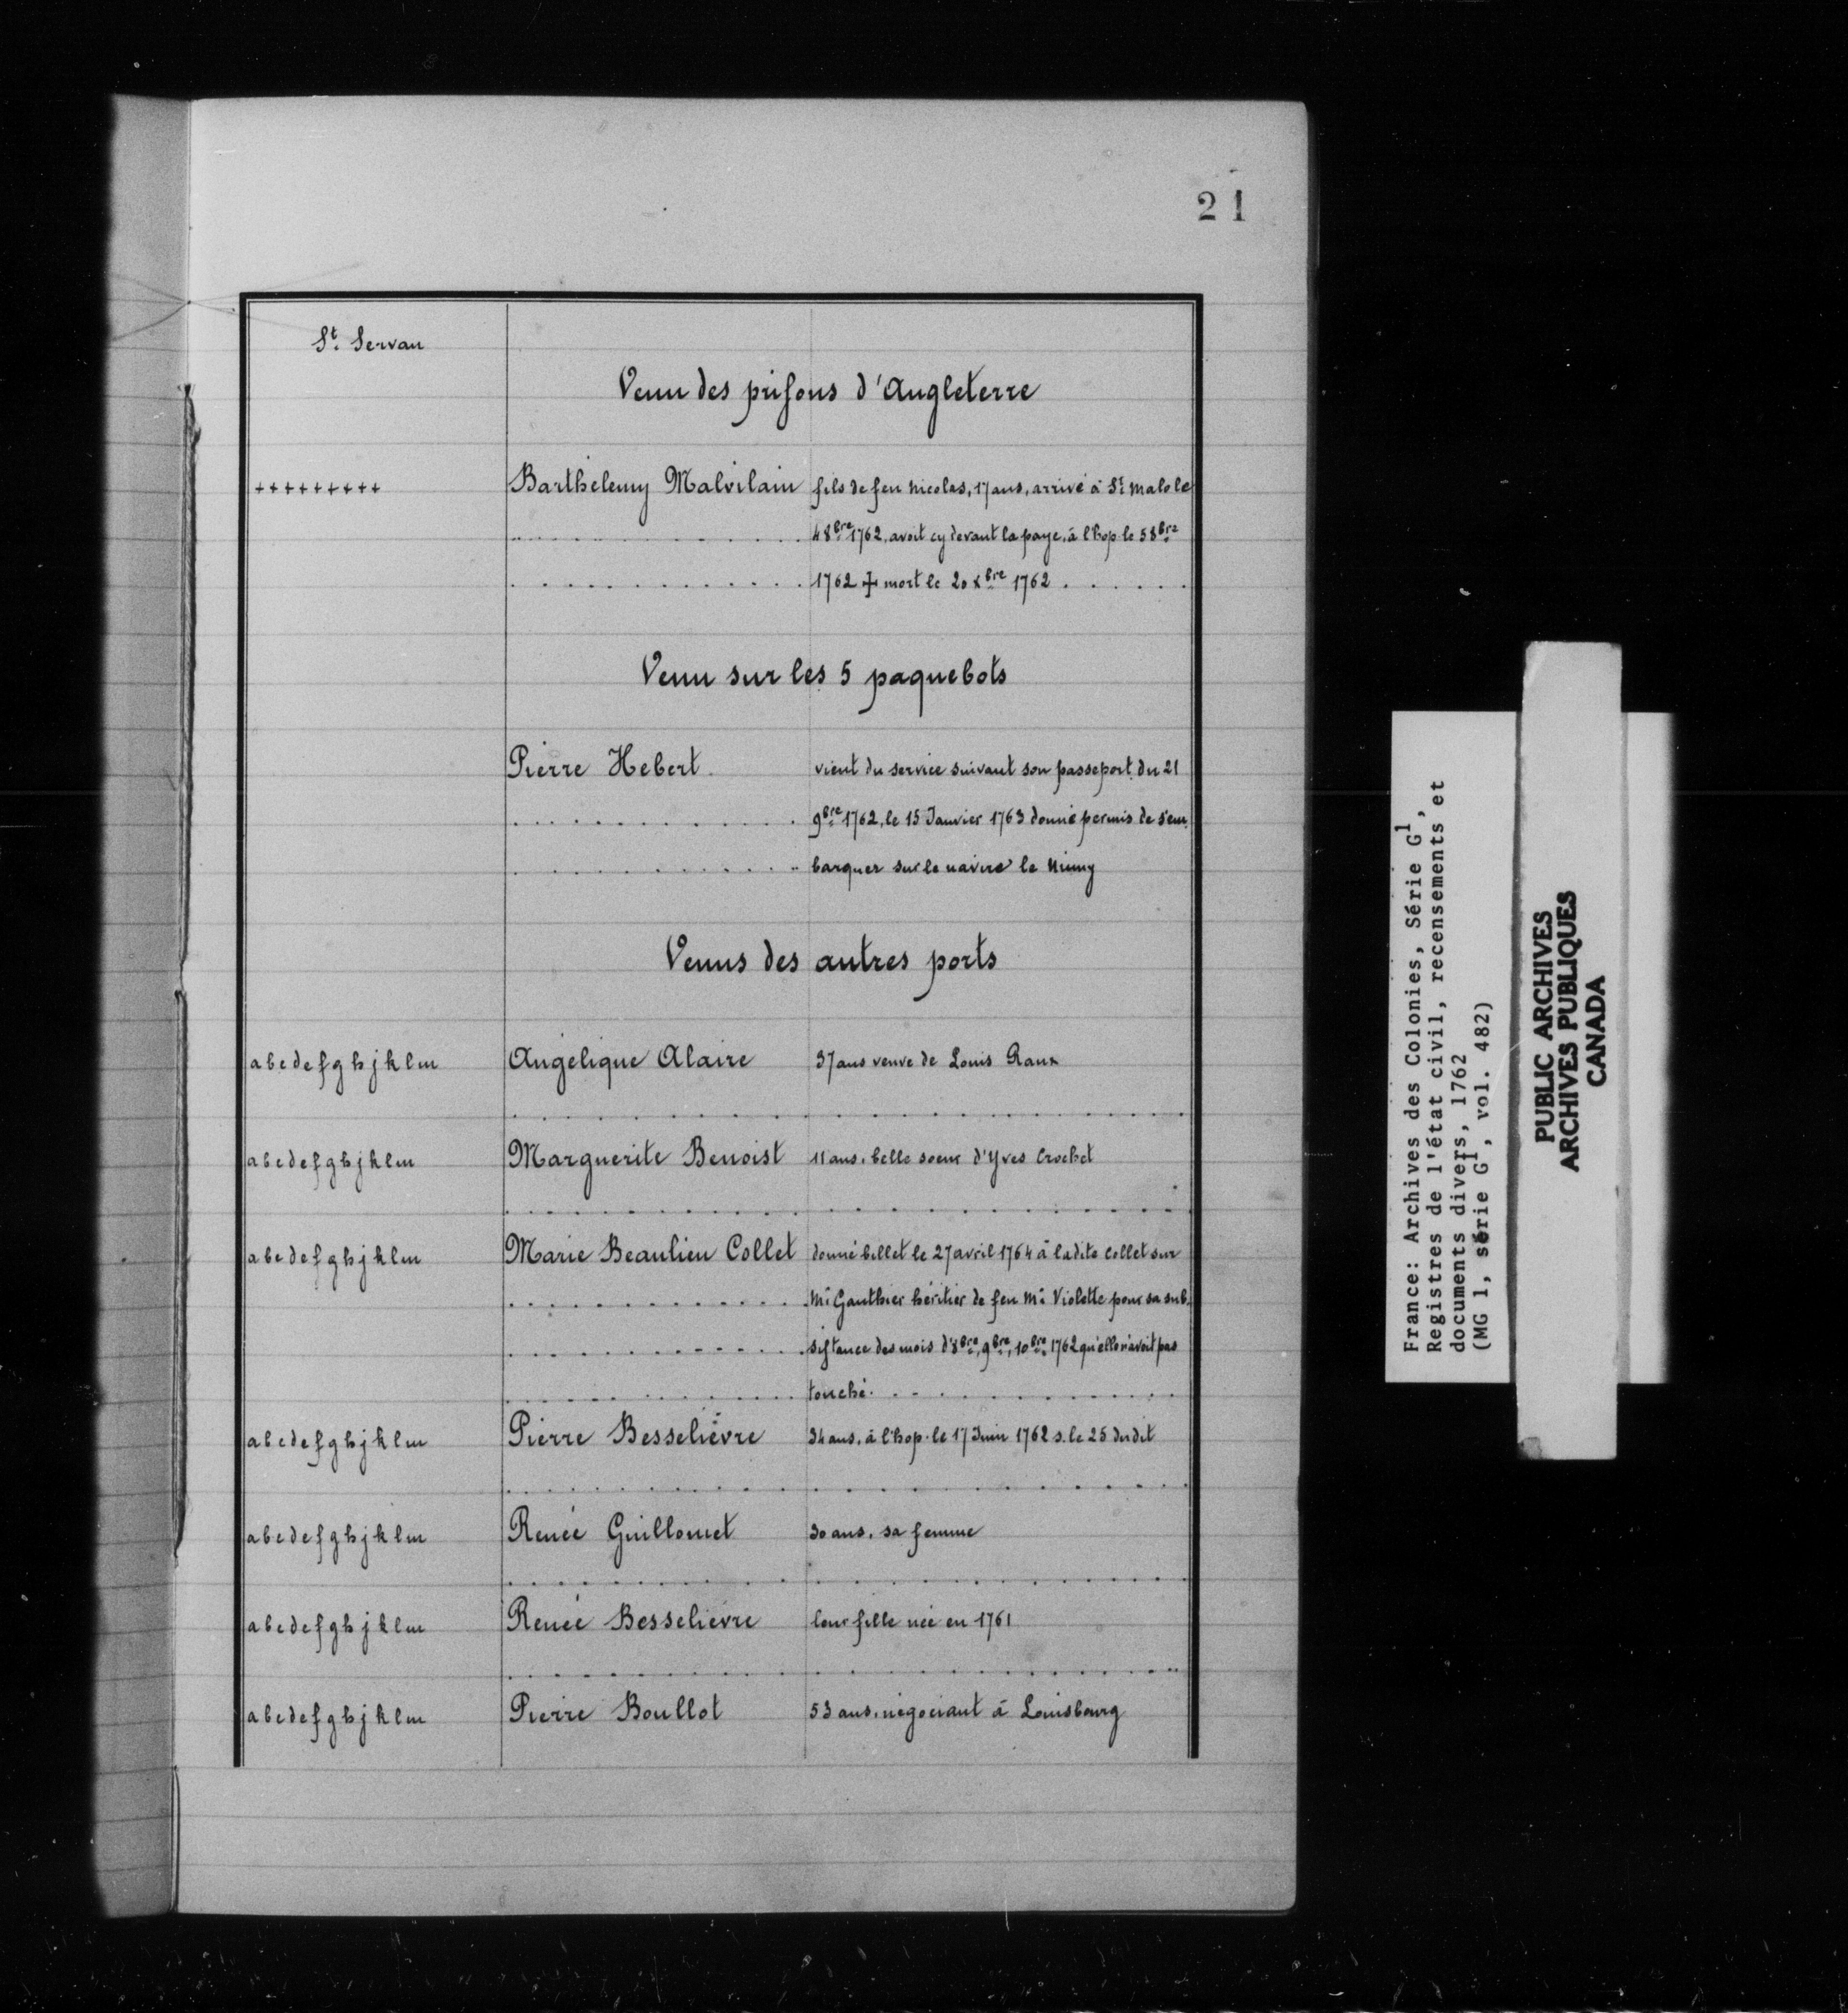 21
St. Servan
Venu des prisons d'Angleterre
+++++++++ Barthélemy Malvilain fils de feu Nicolas, 17 ans, arrivé à St Malo le
4 8bre 1762, avoit cy devant la paye, à l'hop. le 5 8bre
1762 + mort le 20 xbre 1762
Venu sur les 5 paquebots
Pierre Hebert vient du service suivant son passeport du 21
9bre 1762, le 15 Janvier 1763 donné permis de s'em-
barquer sur le navire le
Venus des autres ports
abcdefghjklm Angelique Alaire 37 ans veuve de Louis Raux
abcdefghjklm Marguerite Benoist 11 ans, belle soeur d'Yves Crochet
abcdefghjklm Marie Beaulieu Collet donné billet le 27 avril 1764 à ladite Collet sur
Mr Gauthier héritier de feu Mr Violette pour sa sub-
sistance des mois d'8bre, 9bre, 10bre 1762 qu'elle n'avoit pas
touché.
abcdefghjklm Pierre Besselièvre 34 ans, à l'hop. le 17 Juin 1762 s. le 25 dudit
abcdefghjklm Renée Guilloumet 30 ans, sa femme
abcdefghjklm Renée Besselièvre leur fille née en 1761
abcdefghjklm Pierre Boullot 53 ans, négociant à Louisbourg
France: Archives des Colonies, Série G1,
Registres de l'état civil, recensements et
documents divers, 1762
(MG 1, série G1, vol. 482)
PUBLIC ARCHIVES
ARCHIVES PUBLIQUES
CANADA